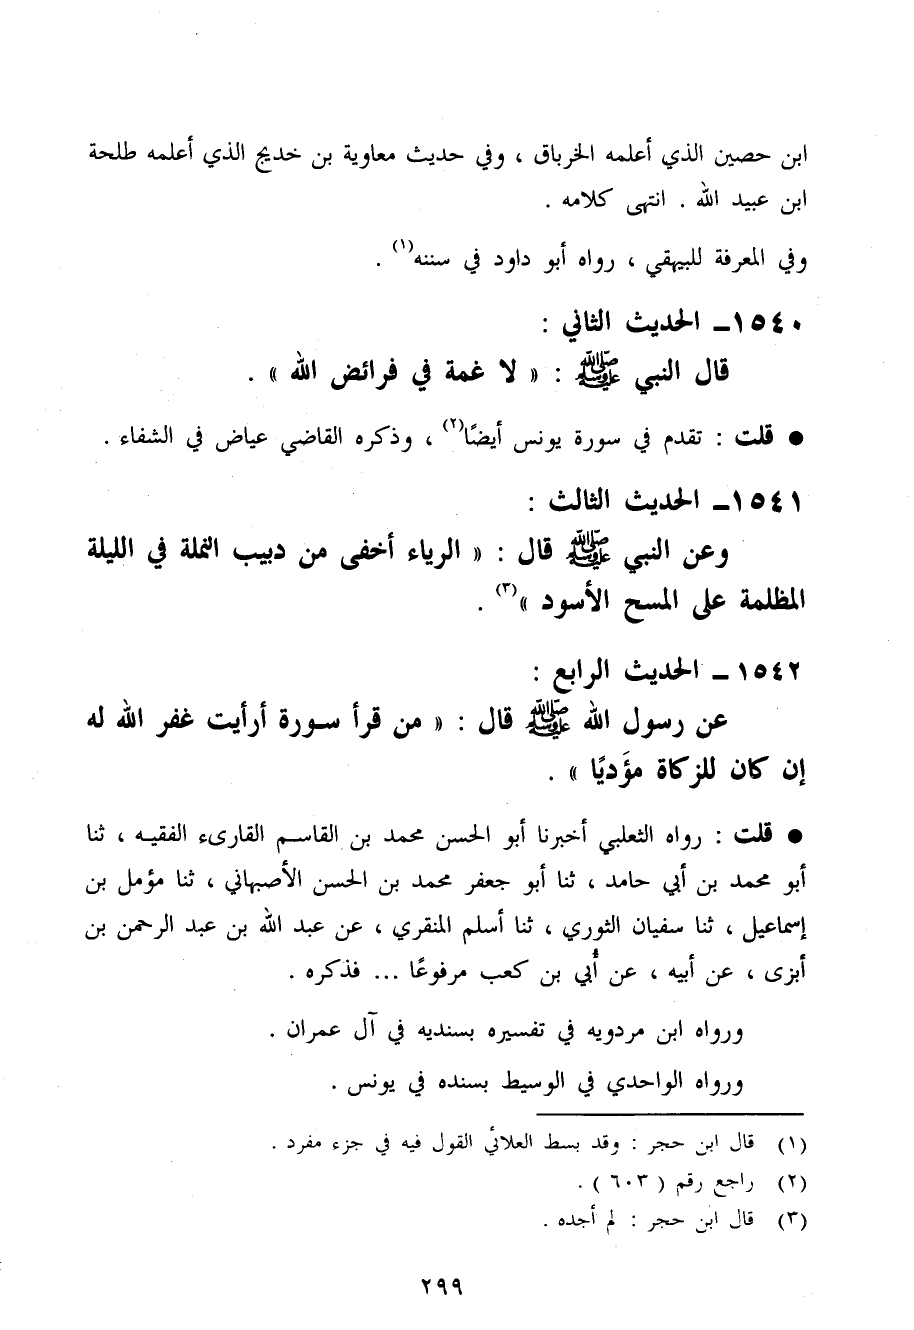 ابن حصين الذي أعلمه الخرباق ، وفي حديث معاوية بن خديج الذي أعلمه طلحة
ابن عبيد الله . انتهى كلامه .
وفي المعرفة للبيهقي ، رواه أبو داود في سننه(١) .
١٥٤٠ـ الحديث الثاني :
قال النبي ﷺ : « لا غمة في فرائض الله » .
● قلت : تقدم في سورة يونس أيضًا(٢) ، وذكره القاضي عياض في الشفاء .
١٥٤١ـ الحديث الثالث :
وعن النبي ﷺ قال : « الرياء أخفى من دبيب النملة في الليلة
المظلمة على المسح الأسود »(٣) .
١٥٤٢ ـ الحديث الرابع :
عن رسول الله ﷺ قال : « من قرأ سورة أرأيت غفر الله له
إن كان للزكاة مؤَديًا » .
● قلت : رواه الثعلبي أخبرنا أبو الحسن محمد بن القاسم القارىء الفقيه ، ثنا
أبو محمد بن أبي حامد ، ثنا أبو جعفر محمد بن الحسن الأصبهاني ، ثنا مؤمل بن
إسماعيل ، ثنا سفيان الثوري ، ثنا أسلم المنقري ، عن عبد الله بن عبد الرحمن بن
أبزى ، عن أبيه ، عن أُبي بن كعب مرفوعًا ... فذكره .
ورواه ابن مردويه في تفسيره بسنديه في آل عمران .
ورواه الواحدي في الوسيط بسنده في يونس .
(١) قال ابن حجر : وقد بسط العلائي القول فيه في جزء مفرد .
(٢) راجع رقم ( ٦٠٣ ) .
(٣) قال ابن حجر : لم أجده .
٢٩٩